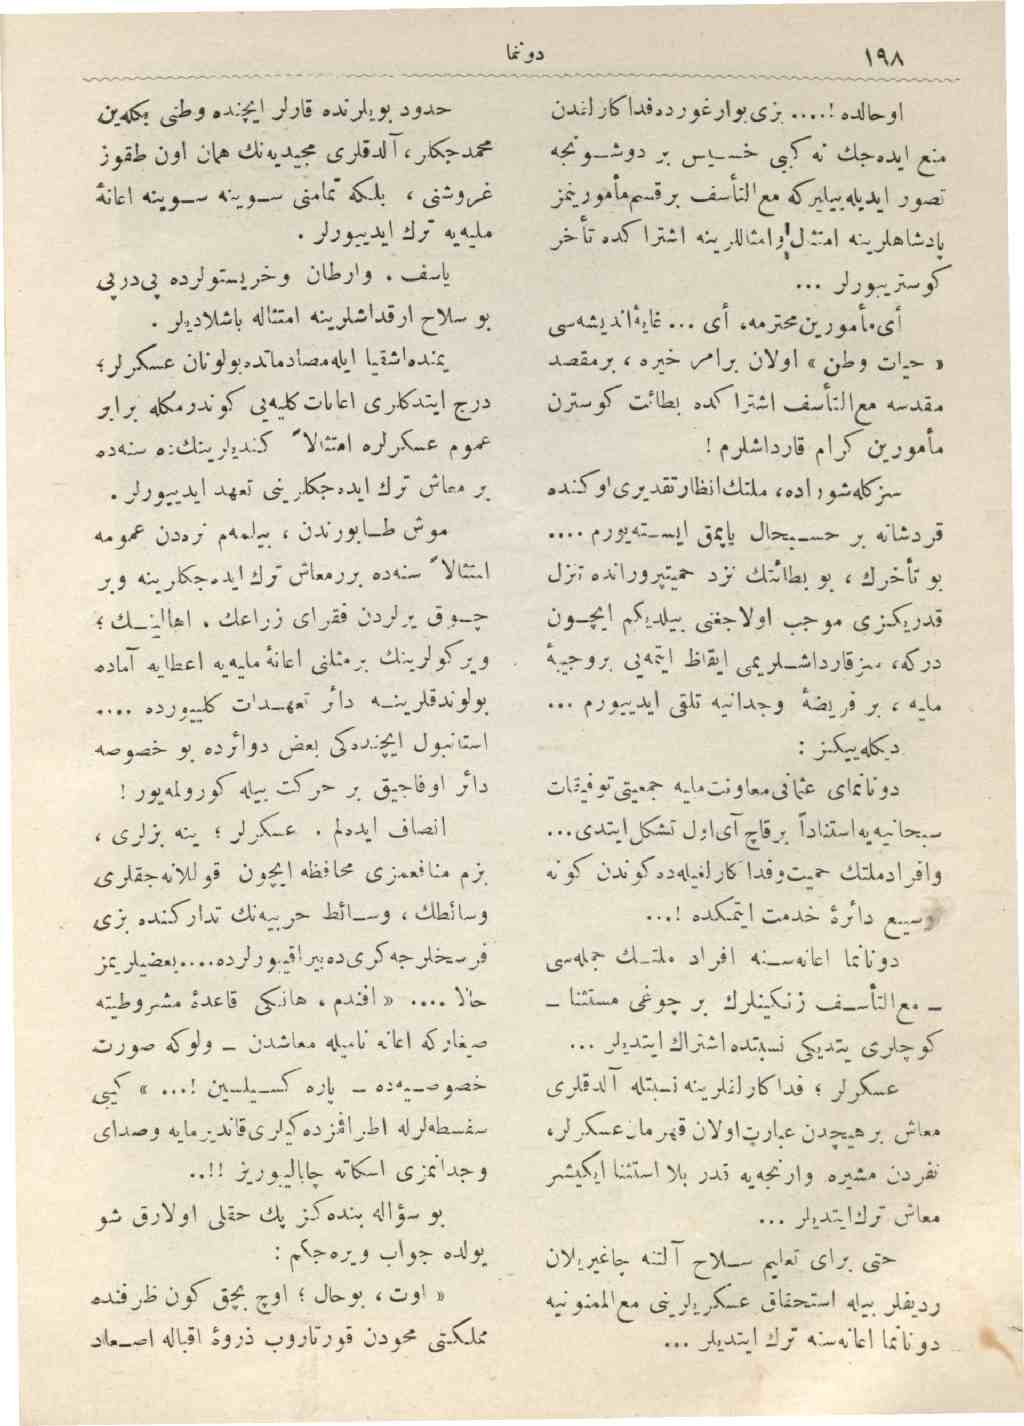 ١٩٨
دوننما
اوحالده !.... بزی بو اوغورده فداكارلغدن
منع ایده‌جك نه كبی خسیس بر دوشونجه
تصور ایدیله‌بیلیركه مع التأسف برقسم مأمورینمز
پادشاهلرینه امتثال وامثاللرینه اشتراكده تأخر
كوستریبورلر ...
أی مأمورین محترمه، أی ... غایهٔ اندیشه‌سی
« حیات وطن » اولان برامر خیره ، برمقصد
مقدسه مع التأسف اشتراكده بطائت كوسترن
مأمورین كرام قارداشلرم !
سزكله شوراده، ملتك انظار تقدیری اوكنده
قردشانه بر حسبحال یاپمق ایسته‌یورم ....
بو تأخرك ، بو بطائتك نزد حمیتپرورانده تنزل
قدریكزی موجب اولاجغنی بیلدیكم ایچون
دركه، سزقارداشلریمی ایقاظ ایتمه‌یی بروجیبهٔ
ملیه ، بر فریضهٔ وجدانیه تلقی ایدییورم ...
دیكله‌ییكز :
دونانمای عثمانی معاونت ملیه جمعیتی توفیقات
سبحانیه‌یه استناداً برقاچ آی اول تشكل ایتدی...
وافراد ملتك حمیت وفداكارلغیله ده كوندن كونه
وسیع دائرهٔ خدمت ایتمكده !...
دونانما اعانه‌سنه افراد ملتك جمله‌سی
ـ مع التأسف زنكینلرك بر چوغی مستثنا ـ
كوچلری یتدیكی نسبتده اشتراك ایتدیلر ...
عسكرلر ؛ فداكارلغلرینه نسبتله آلدقلری
معاش برهیچدن عبارت اولان قهرمان عسكرلر،
نفردن مشیره وارنجه‌یه قدر بلا استثنا ایكیشر
معاش ترك ایتدیلر ...
حتی برای تعلیم سلاح آلتنه چاغیریلان
ردیفلر بیله استحقاق عسكریلرینی مع الممنونیه
دونانما اعانه‌سنه ترك ایتدیلر ...
حدود بویلرنده قارلر ایچنده وطنی بكله‌ین
محمدجكلر، آلدقلری مجیدیه‌نك همان اون طقوز
غروشنی ، بلكه تمامنی سوینه سوینه اعانهٔ
ملیه‌یه ترك ایدییورلر .
یاسف . وارطان وخریستولرده پی‌درپی
بو سلاح ارقداشلرینه امتثاله باشلادیلر .
یمنده اشقیا ایله مصادماتده بولونان عسكرلر؛
درج ایتدكلری اعانات كلیه‌یی كوندرمكله برابر
عموم عسكرلره امتثالاً كندیلرینك‌ده سنه‌ده
بر معاش ترك ایده‌جكلرینی تعهد ایدییورلر .
موش طابورندن ، بیلمه‌م نره‌دن عمومه
امتثالاً سنه‌ده بررمعاش ترك ایده‌جكلرینه وبر
چوق یرلردن فقرای زراعك . اهالینك ؛
ویركولرینك برمثلنی اعانهٔ ملیه‌یه اعطایه آماده
بولوندقلرینه دائر تعهدات كلییورده ....
استانبول ایچنده‌كی بعض دوائرده بو خصوصه
دائر اوفاجیق بر حركت بیله كورولمه‌یور !
انصاف ایده‌لم . عسكرلر ؛ ینه بزلری ،
بزم منافعمزی محافظه ایچون قوللانه‌جقلری
وسائطك ، وسائط حربیه‌نك تداركنده بزی
فرسخلرجه كری‌ده بیراقیبورلرده.... بعضیلریمز
حالا .... « افندم ، هانكی قاعدهٔ مشروطیته
صیغاركه اعانه نامیله معاشدن ـ ولوكه صورت
خصوصیه‌ده ـ پاره كسیلسین !... » كبی
سفسطه‌لرله اطرافمزده‌كیلری قاندیرمایه وصدای
وجدانمزی اسكاته چابالیوریز !!..
بو سؤاله بنده‌كز پك حقلی اولارق شو
یولده جواب ویره‌جكم :
« اوت ، بوحال ؛ اوچ بچق كون ظرفنده
مملكتی محودن قورتاروب ذروهٔ اقباله اصعاد